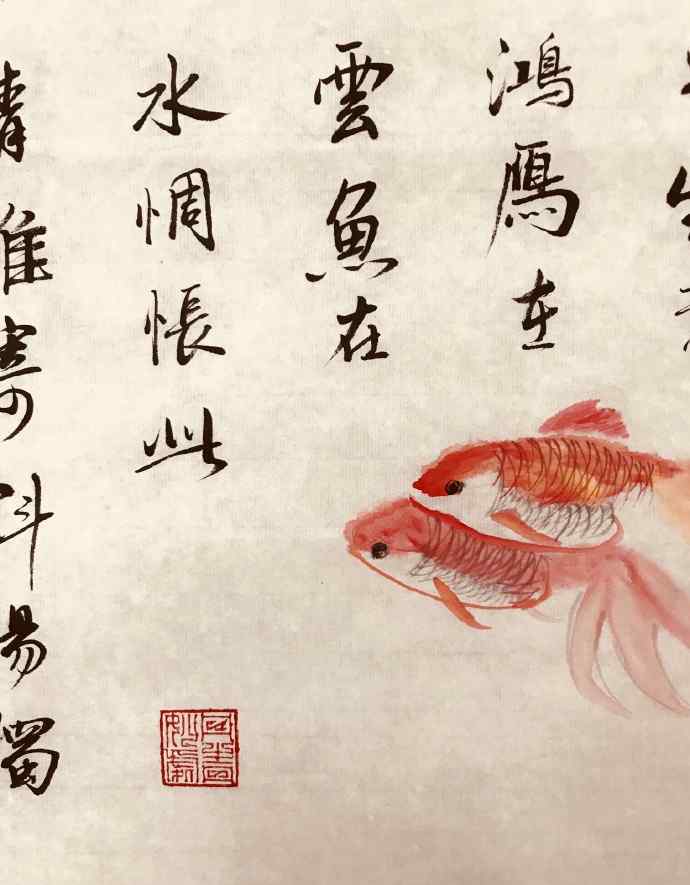 鴻鴈在
雲魚在
水惆悵此
情難寄斜陽獨